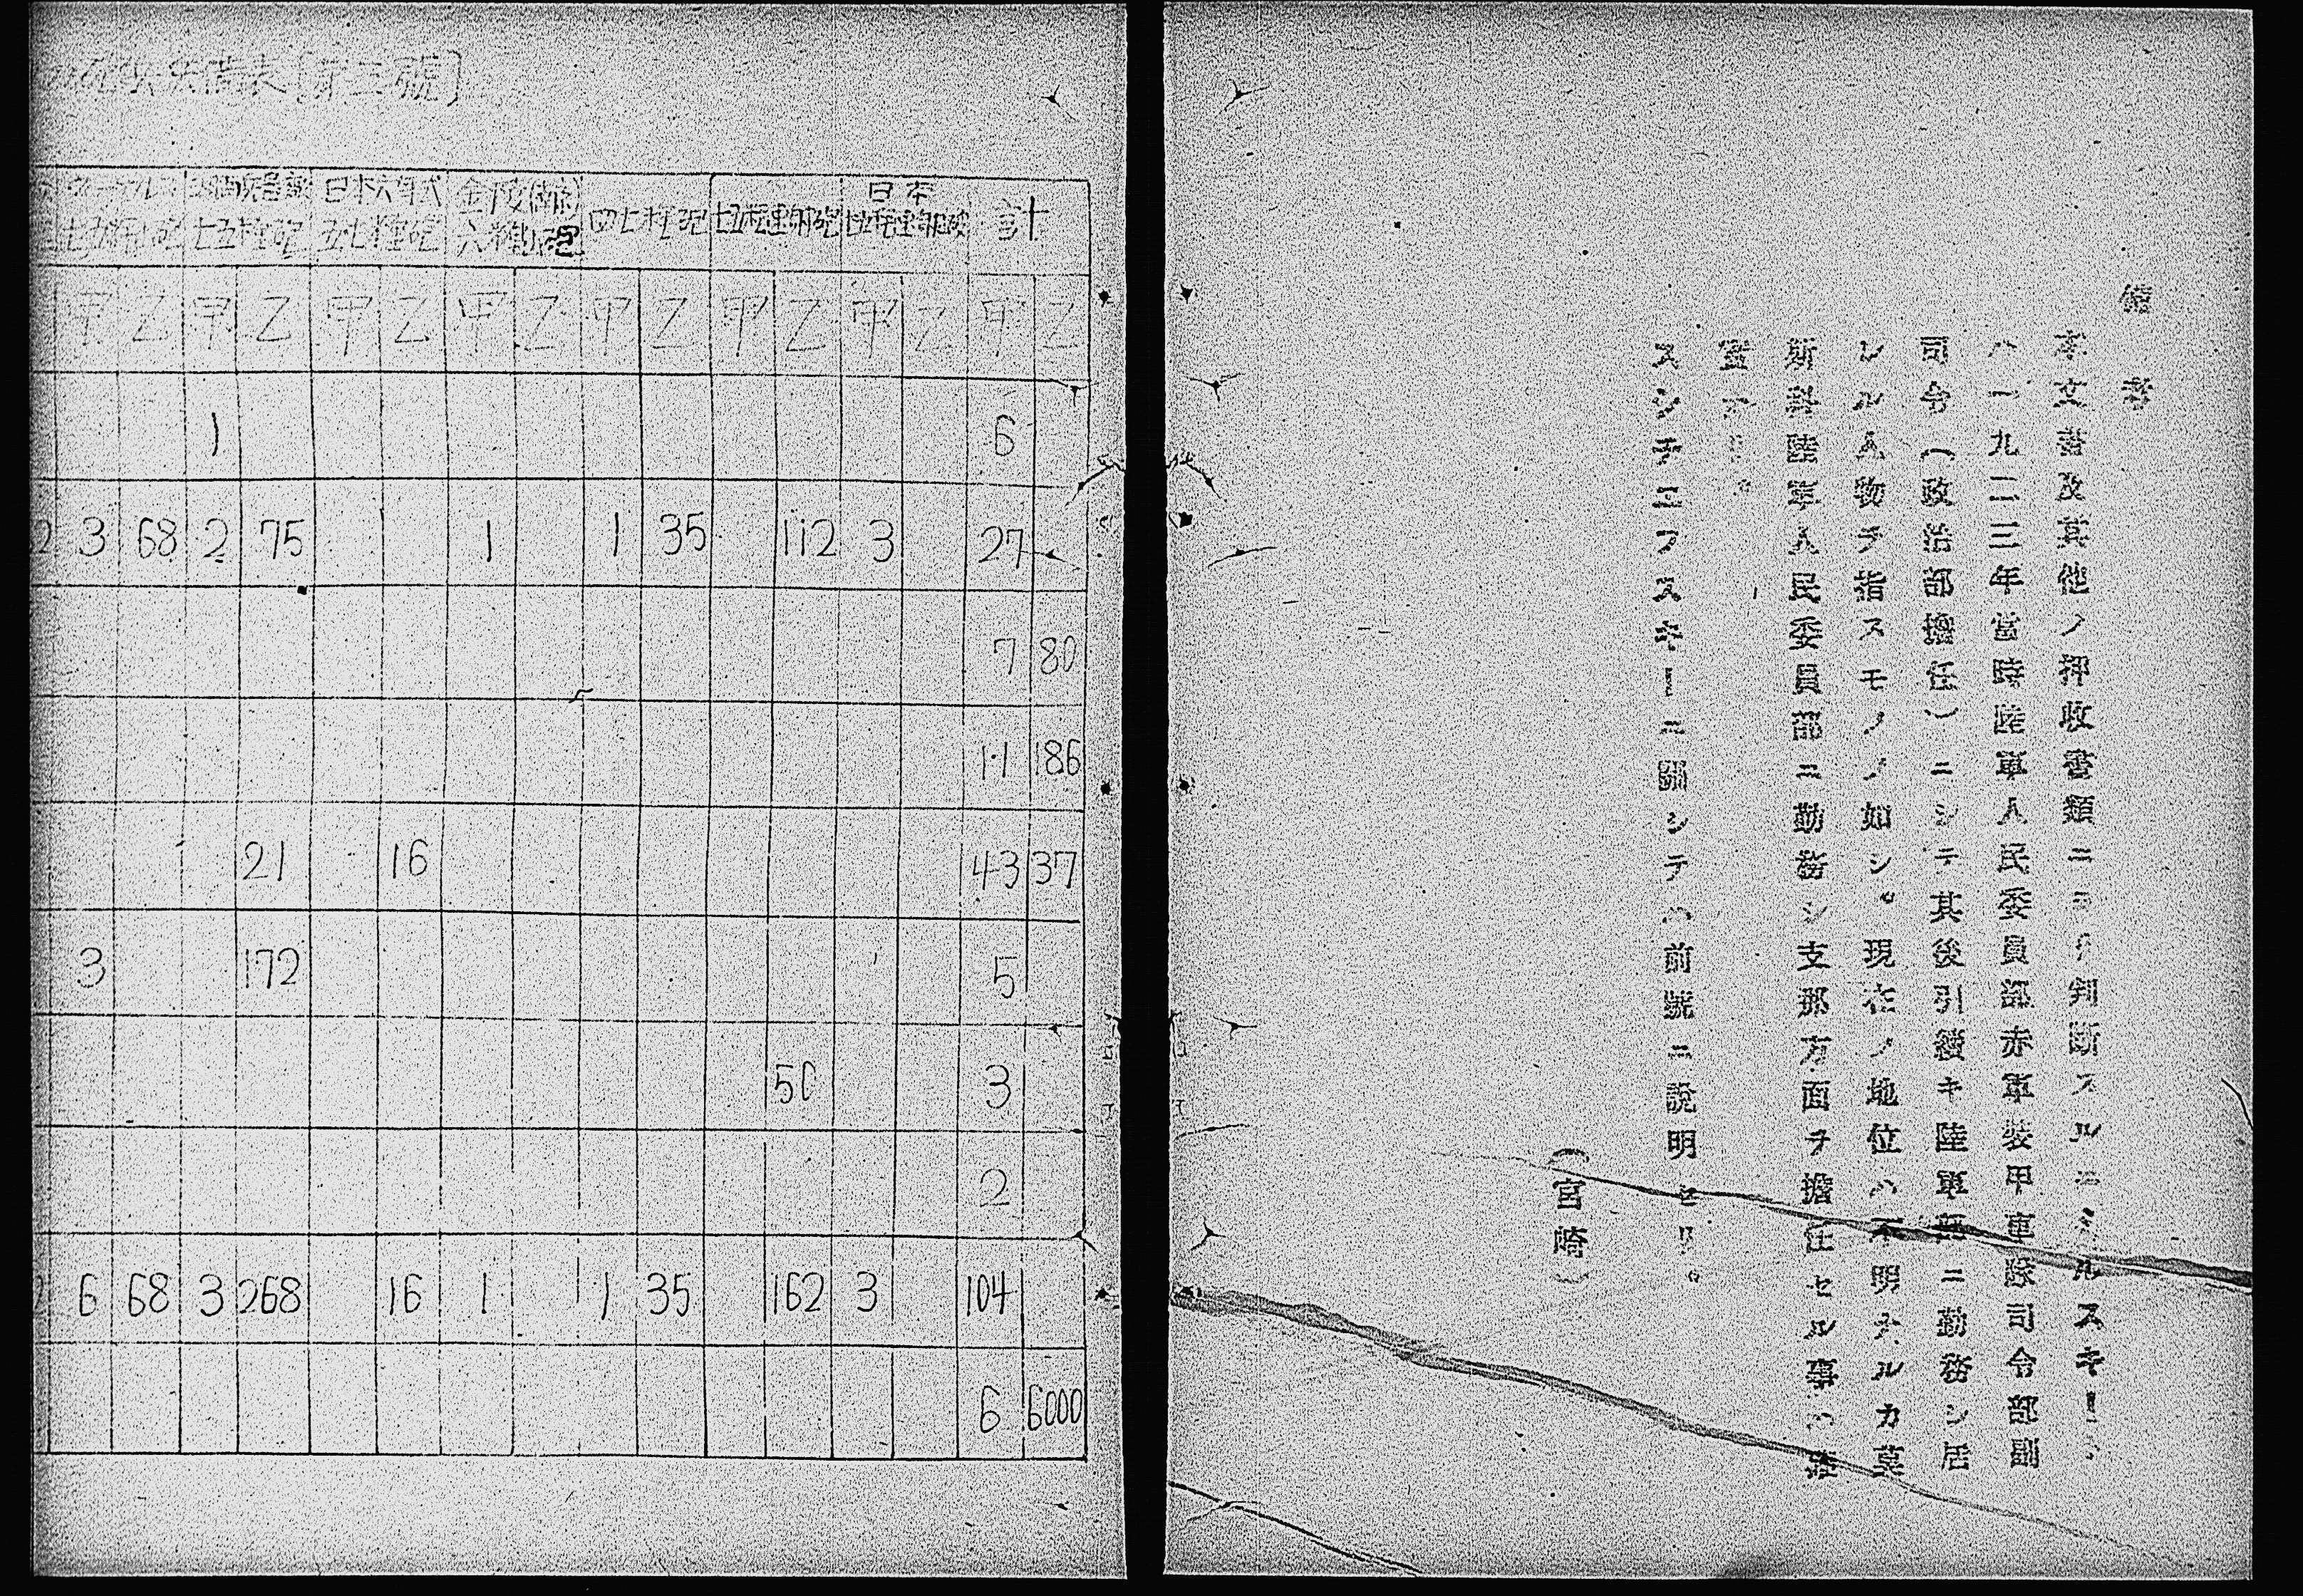 備考
本文書及其他ノ押收書類ニヨリ判斷スルニミルスキー
ハ一九二三年當時陸軍人民委員部赤軍裝甲車隊司令部副
司令(政治部擔任)ニシテ其後引續キ陸軍部ニ勤務シ居
レル人物ヲ指スモノノ如シ。現在ノ地位ハ不明ナルカ莫
斯科陸軍人民委員部ニ勤務シ支那方面ヲ擔任セル事ハ確
實ナリ。
スシチエフスキーニ關シテハ前號ニ說明セリ。
(宮崎)
表[第三號]
七五粍砲 七五粍砲 日本六年式五七粍砲 金陵 六粍砲 四七粍砲 七五粍速射砲 日本 速射砲 計
甲 乙 甲 乙 甲 乙 甲 乙 甲 乙 甲 乙 甲 乙 甲 乙
1 6
2 3 68 2 75 1 1 35 112 3 27
7 80
11 186
21 16 43 37
3 172 5
50 3
2
6 68 3 268 16 1 1 35 162 3 104
6 6000